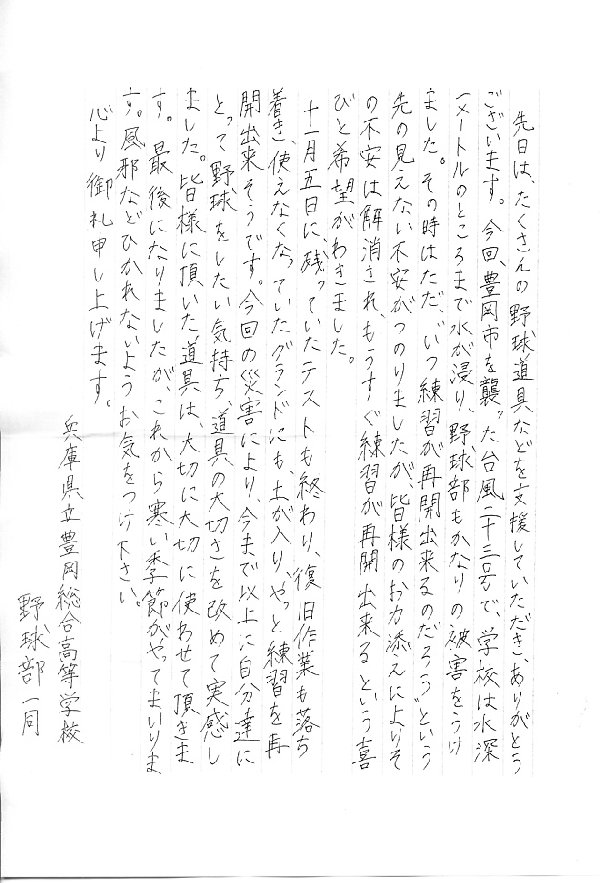 先日は、たくさんの野球道具などを支援していただき、ありがとう
ございます。今回、豊岡市を襲った台風二十三号で、学校は水深
一メートルのところまで水が浸り、野球部もかなりの被害をうけ
ました。その時はただ、“いつ練習が再開出来るのだろう”という
先の見えない不安がつのりましたが、皆様のお力添えによりそ
の不安は解消され、もうすぐ練習が再開出来るという喜
びと希望がわきました。
十一月五日に、残っていたテストも終わり、復旧作業も落ち
着き、使えなくなっていたグランドにも、土が入り、やっと練習を再
開出来そうです。今回の災害により、今まで以上に自分達に
とって野球をしたい気持ち、道具の大切さを改めて実感し
ました。皆様に頂いた道具は、大切に大切に使わせて頂きま
す。最後になりましたが、これから寒い季節がやってまいりま
す。風邪などひかれないようお気をつけ下さい。
心より御礼申し上げます。
兵庫県立豊岡総合高等学校
野球部一同